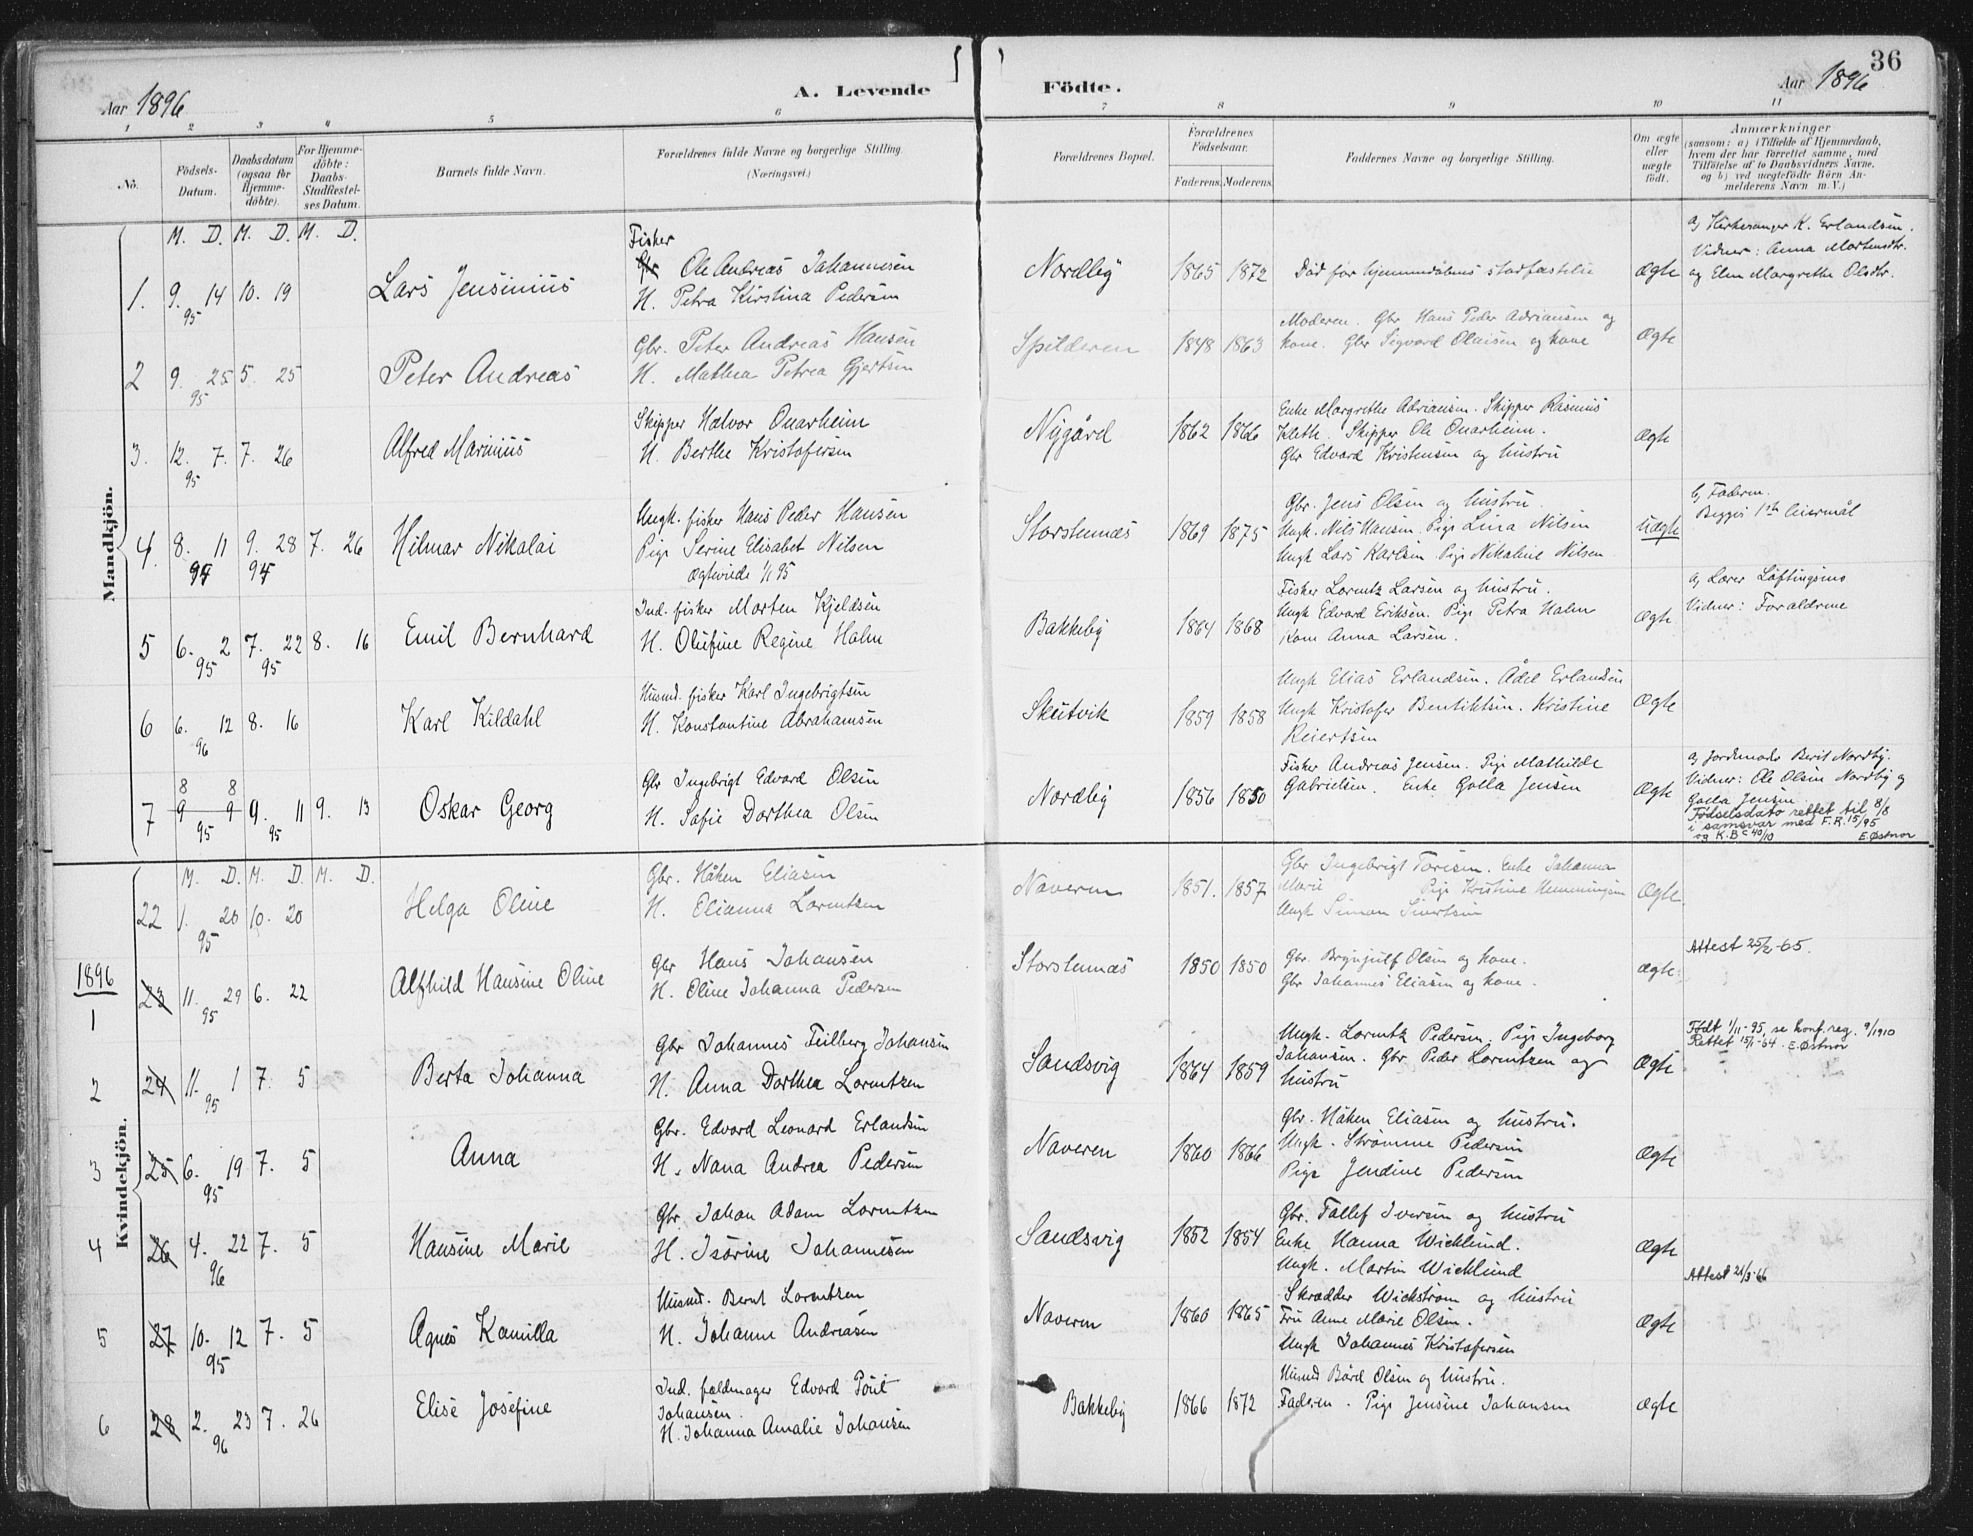 36
Aar 1896 A. Levende Födte. Aar 1896
1 2 3 4 5 6 7 8 9 10 11
No.
Födsels-Datum.
Daabsdatum (ogsaa for Hjemme-döbte).
For Hjemme-döbte: Daabs-Stadfæstel-ses Datum.
Barnets fulde Navn.
Forældrenes fulde Navne og borgerlige Stilling.
(Næringsvei.)
Forældrenes Bopæl.
Forældrenes Födselsaar.
Faderens. Moderens.
Faddernes Navne og borgerlige Stilling.
Om ægte eller uægte födt.
Anmærkninger
(saasom: a) i Tilfælde af Hjemmedaab,
hvem der har forrettet samme, med
Tilföielse af to Daabsvidners Navne,
og b) ved uægtefödte Börn An-
melderens Navn m. V.)
Mandkjön.
M. D. M. D. M. D.
1. 9. 14 95 10. 19 Lars Jensinius
Fisker
Gbr Ole Andreas Johannesen
H. Petra Kirstina Pedersen
Nordby 1865 1872 Död før hjemmedåbens stadfæstelse Ægte
a, Kirkesanger K. Erlandsen.
Vidner: Anna Mortensdtr.
og Elen Margrethe Olsdtr.
2 9. 25 95 5. 25 Peter Andreas
Gbr. Peter Andreas Hansen
H. Mathea Petrea Gjertsen
Spilderen 1848 1863
Moderen. Gbr Hans Peder Adriansen og
kone. Gbr Sigvard Olaisen og kone
Ægte
3. 12. 7. 95 7. 26 Alfred Marinius
Skipper Halvor Onarheim
H. Berthe Kristofersen
Nygård 1862 1866
Enke Margrethe Adriansen. Skipper Rasmus
Kleth. Skipper Ole Onarheim.
Gbr Edvard Kristensen og hustru
Ægte
4. 8. 11 94 9. 28 94 7. 26 Hilmar Nikolai
Ungk. fisker Hans Peder Hansen
Pige Serine Elisabet Nilsen
Ægteviede 1/1 95
Storstennæs 1869 1875
Gbr. Jens Olsen og hustru.
Ungk. Nils Hansen. Pige Lina Nilsen
Ungk Lars Karlsen. Pige Nikoline Nilsen
uægte
b, Faderen.
Begges 1ste leiermål
5 6. 2 95 7. 22 95 8. 16 Emil Bernhard
Ind. fisker Morten Kjeldsen
H. Olufine Regine Holm
Bakkeby 1864 1868
Fisker Lorentz Larsen og hustru.
Ungk Edvard Eriksen. Pige Petra Holm
Kone Anna Larsen.
Ægte
a, Lærer Löftingsmo
Vidner: Forældrene
6 6. 12 96 8. 16 Karl Kildahl
Husmd. fisker Karl Ingebrigtsen
H. Konstantine Abrahamsen
Skutvik 1859 1858
Ungk Elias Erlandsen. Ådel Erlandsen
Ungk Kristofer Bentiktsen. Kristine
Reiertsen
Ægte
8 8
7 9 9 95 9. 11 95 9. 13 Oskar Georg
Gbr Ingebrigt Edvard Olsen
H. Sofie Dorthea Olsen
Nordby 1856 1850
Fisker Andreas Jensen. Pige Mathilde
Gabrielsen. Enke Golla Jensen
Ægte
a, Jordmoder Berit Nordby.
Vidner: Ole Olsen Nordby og
Golla Jensen.
Födselsdato rettet til 8/8
i samsvar med F.R. 15/95
og K.B c 40/10 E. Østnor
Kvindekjön.
M. D. M. D. M. D.
22 1. 20 95 10. 20 Helga Oline
Gbr. Håken Eliasen
H. Elianna Lorentzen
Naveren 1851. 1857
Gbr Ingebrigt Toresen. Enke Johanna
Marie Pige Kristine Hemmingsen
Ungk Simon Sivertsen
Ægte.
1896
1 23 11. 29 95 6. 22 Alfhild Hansine Oline
Gbr Hans Johansen
H. Oline Johanna Pedersen
Storstennæs 1850 1850
Gbr. Brynjulf Olsen og kone.
Gbr Johannes Eliasen og kone.
Ægte
Attest 25/2-65.
2 24 11. 1 95 7. 5 Berta Johanna
Gbr Johannes Feilberg Johansen
H. Anna Dorthea Lorentzen
Sandsvig 1864 1859
Ungk. Lorentz Pedersen. Pige Ingeborg
Johansen. Gbr Peder Lorentzen og
hustru
Ægte
Född 1/11-95, se konf.reg. 9/1910
Rettet 15/1-64. E. Østnor
3 25 6. 19 95 7. 5 Anna
Gbr. Edvard Leonard Erlandsen
H. Nana Andrea Pedersen
Naveren 1860 1866
Gbr. Håken Eliasen og hustru.
Ungk. Strømme Pedersen
Pige Jendine Pedersen
Ægte
4 26 4. 22 96 7. 5 Hansine Marie
Gbr. Johan Adam Lorentzen
H. Isörine Johannesen
Sandsvig 1852 1854
Gbr. Tollef Iversen og hustru
Enke Hanna Wicklund.
Ungk. Martin Wicklund
Ægte
5 27 10. 12 95 7. 5 Agnes Kamilla
Husmd. Bernt Lorentzen
H. Johanne Andreasen
Naveren 1860 1865
Skrædder Wickstrøm og hustru
Fru Anne Marie Olsen.
Ungk Johannes Kristofersen
Ægte
Attest 21/3-66
6 28 2. 23 96 7. 26 Elise Josefine
Ind. faldmager Edvard
Johansen.
H. Johanna Amalie Johansen
Bakkeby 1866 1872
Husmd Bård Olsen og hustru.
Faderen. Pige Jensine Johansen
Ægte